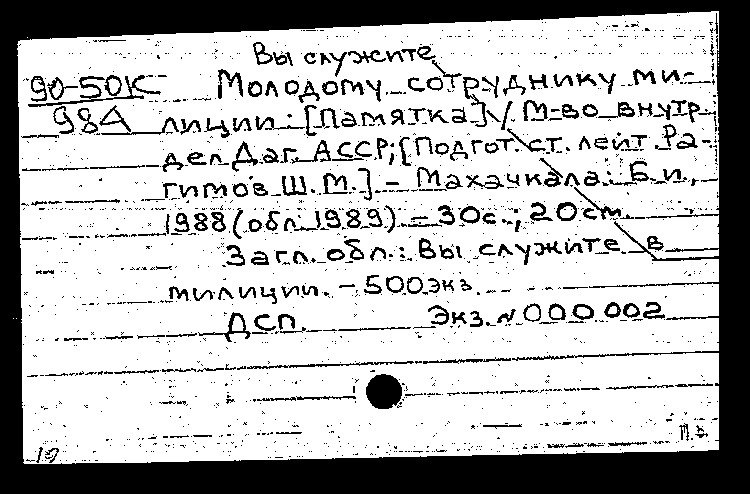 Вы служите
90-50К Молодому сотруднику ми-
98А лиции: [Памятка] / М-во внутр.
дел Даг. АССР; [Подгот. ст. лейт. Ра-
гимов Ш. М.] - Махачкала: Б. и.,
1988 (обл. 1989). - 30 с.; 20 см.
Загл. обл.: Вы служите в
милиции. - 500 экз.
ДСП. Экз. № 000 002
10